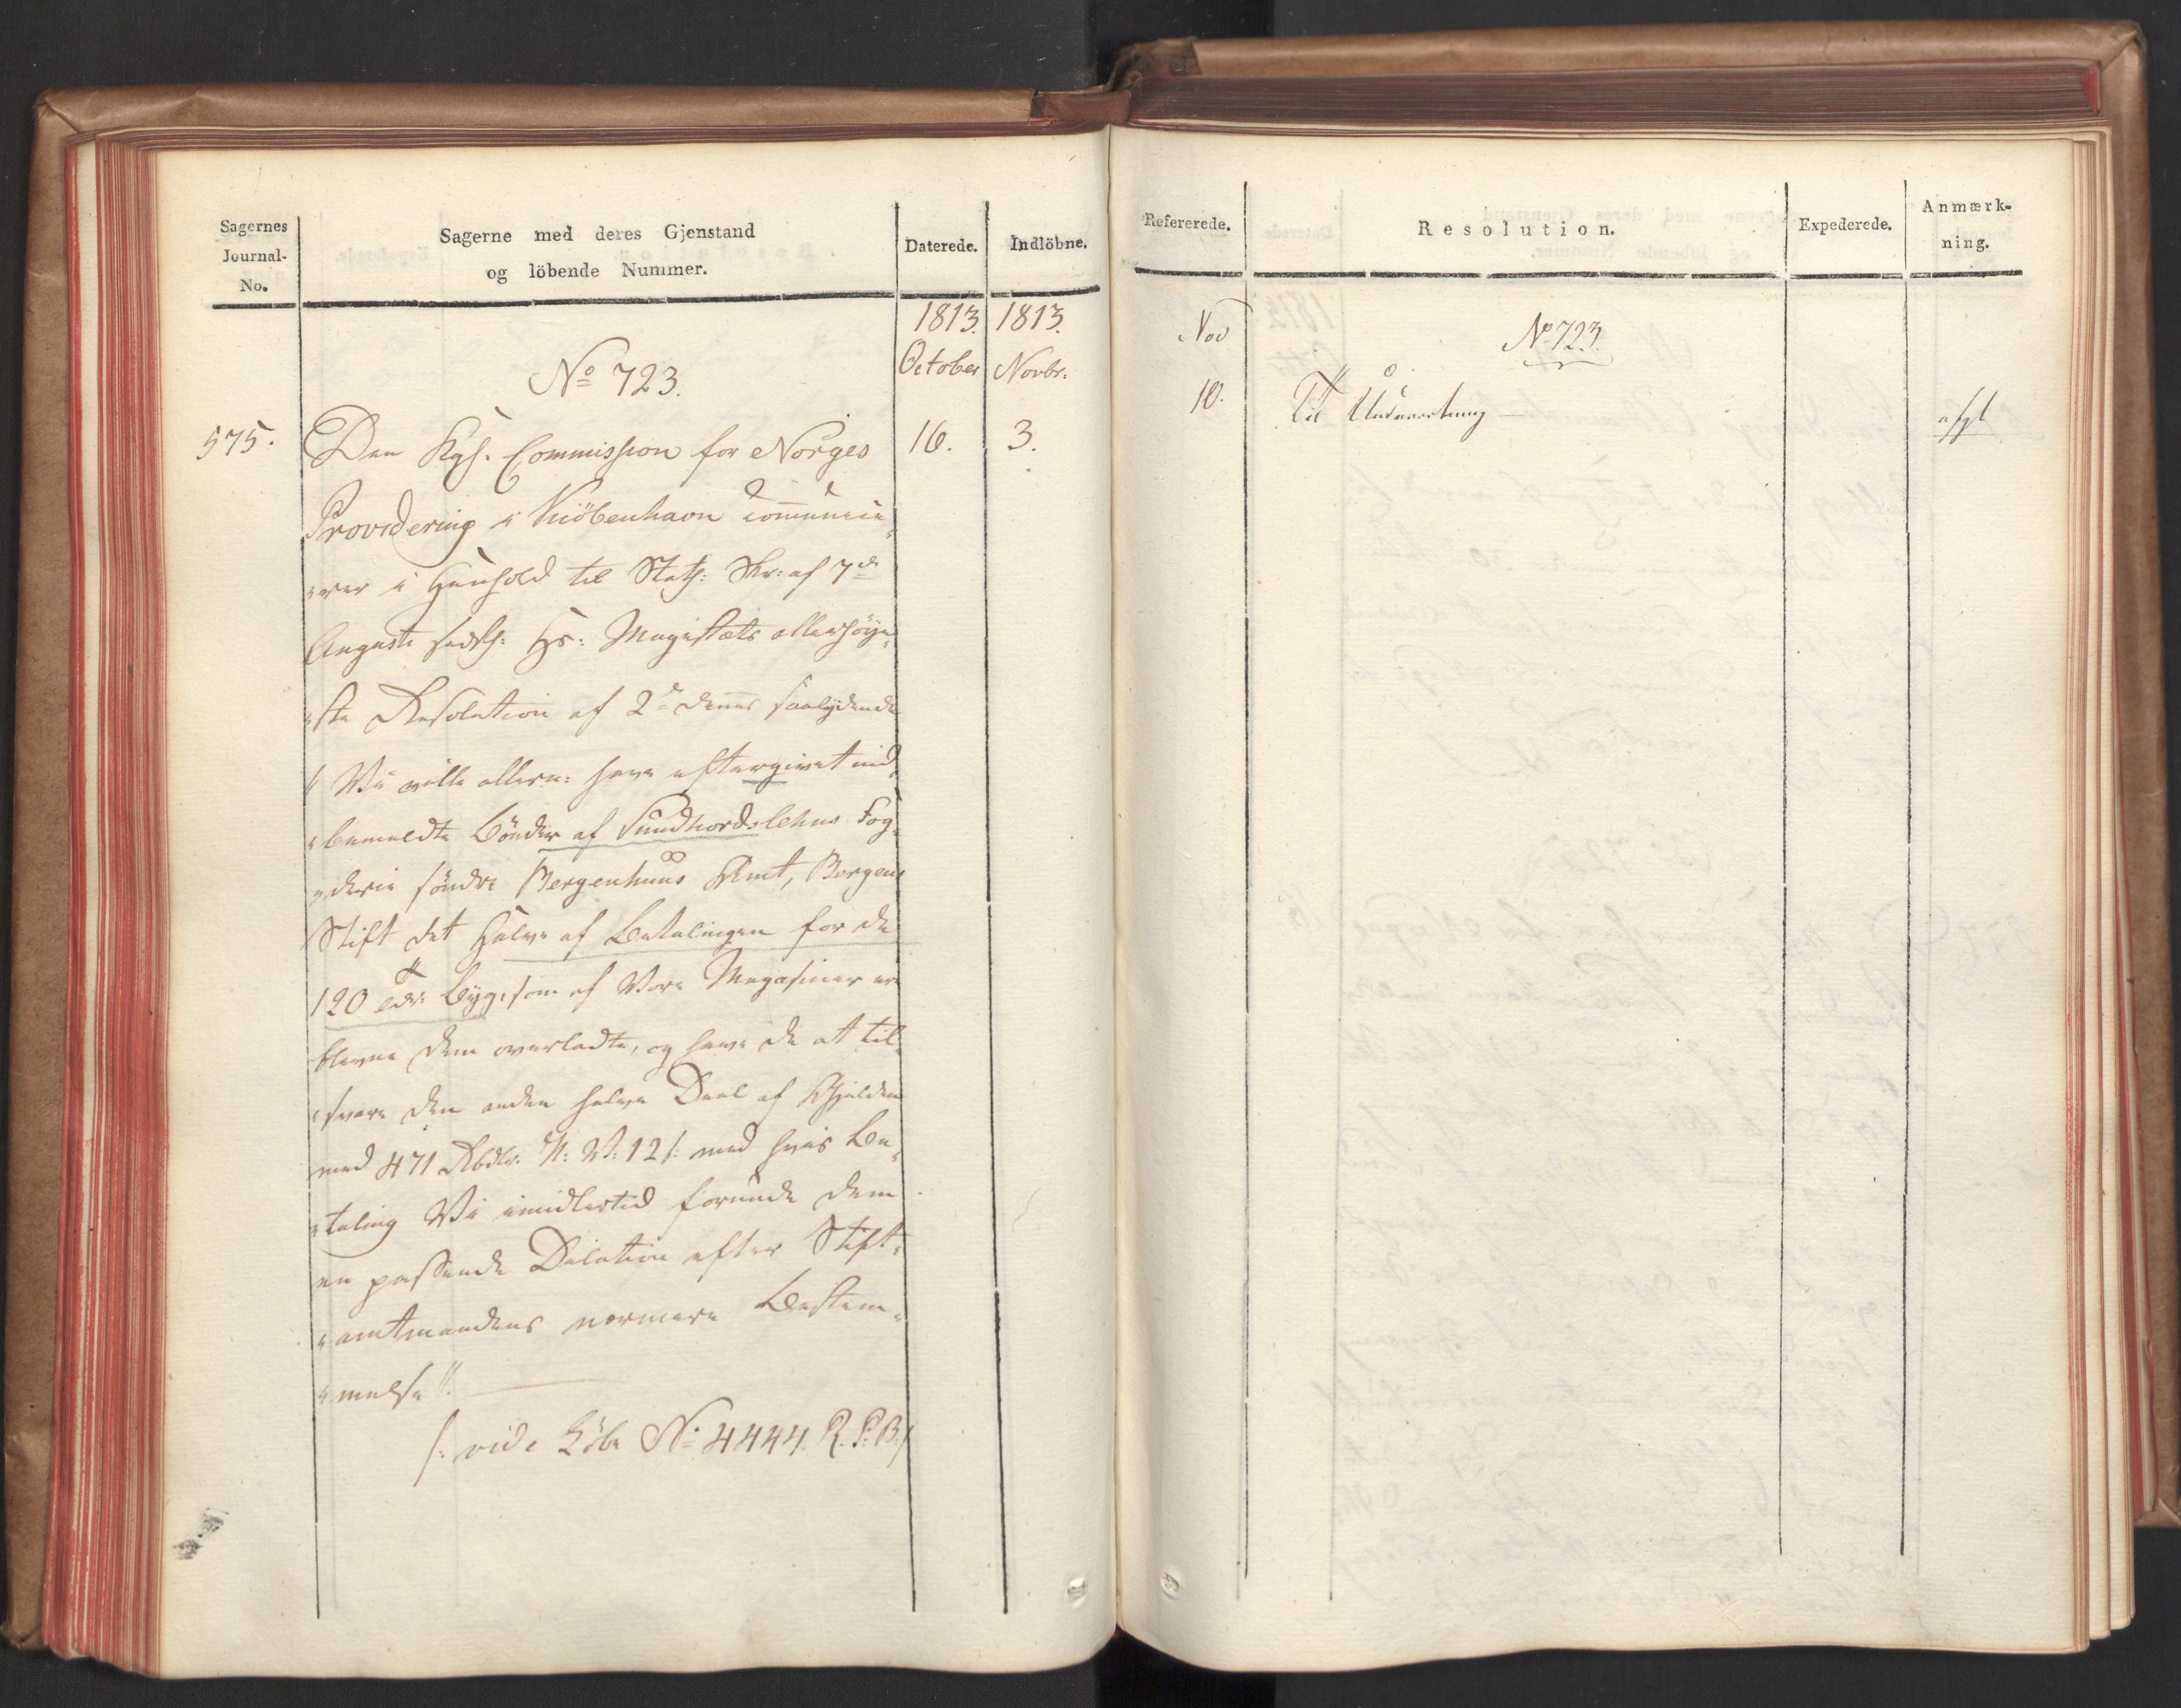 Sagernes
Journal-
No.
Sagerne med deres Gjenstand
og löbende Nummer.
Daterede.
Indlöbne.
1813. 1813.
October Novbr.
No 723.
575. Den Kgl. Commission for Norges 16. 3.
Providering i Kiöbenhavn communice¬
¬rer i Henhold til Skr: af 7de
Augusti Hs: Majestæts allerhöye¬
¬ste Resolution af 2de dennes saalydende
"Vi ville allern: have eftergivet ind¬
¬bemeldte Bönder af Sundhordslehns Fog¬
¬derie söndre Bergenhuus Amt, Bergens
Stift det halve af Betalingen for de
120 Tdr. Byg, som af Vore Magasiner ere
blevne dem overladte, og have de at til¬
¬svare den anden halve Deel af Gjelden
med 471 Rbdlr. N: V: 12 s: med hvis Be¬
¬taling Vi imidlertid forunde dem
en passende Dilation efter Stift¬
¬amtmandens nærmere Bestem¬
¬melse".
/: vide Löbe No 4444. R. P: B:/
Refererede.
Resolution.
Expederede.
Anmærk-
ning.
Nov
No 723.
10. Til Underretning